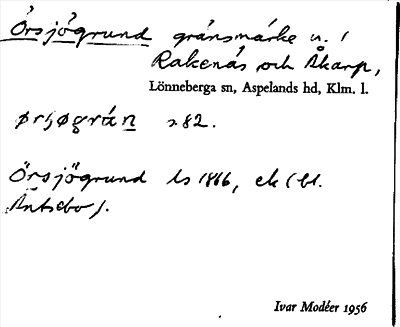 Örsjögrund gränsmärke n. /
Rakenäs och Åkarp,
Lönneberga sn, Aspelands hd, Klm. l.
ørʃøgrán s. 82.
Örsjögrund ls 1866, ek (bl.
Äntsebo).
Ivar Modéer 1956